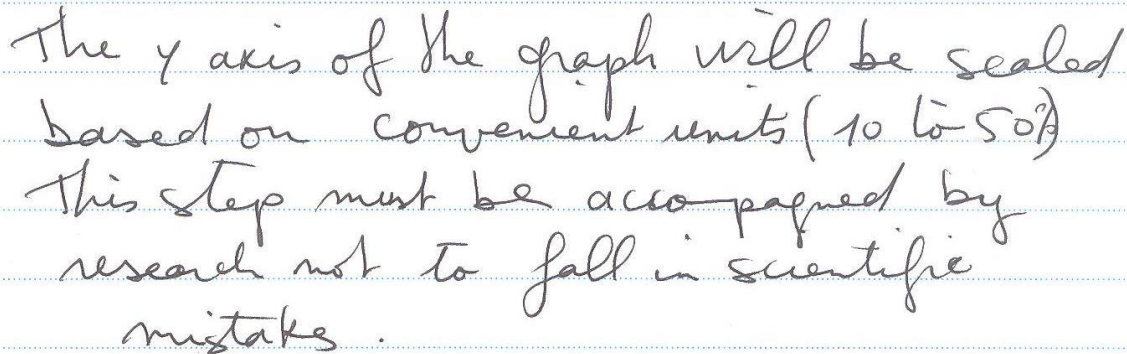 The y axis of the graph will be scaled
based on convenient units (10 to 50%)
This step must be accompagned by
research not to fall in scientific
mistakes.